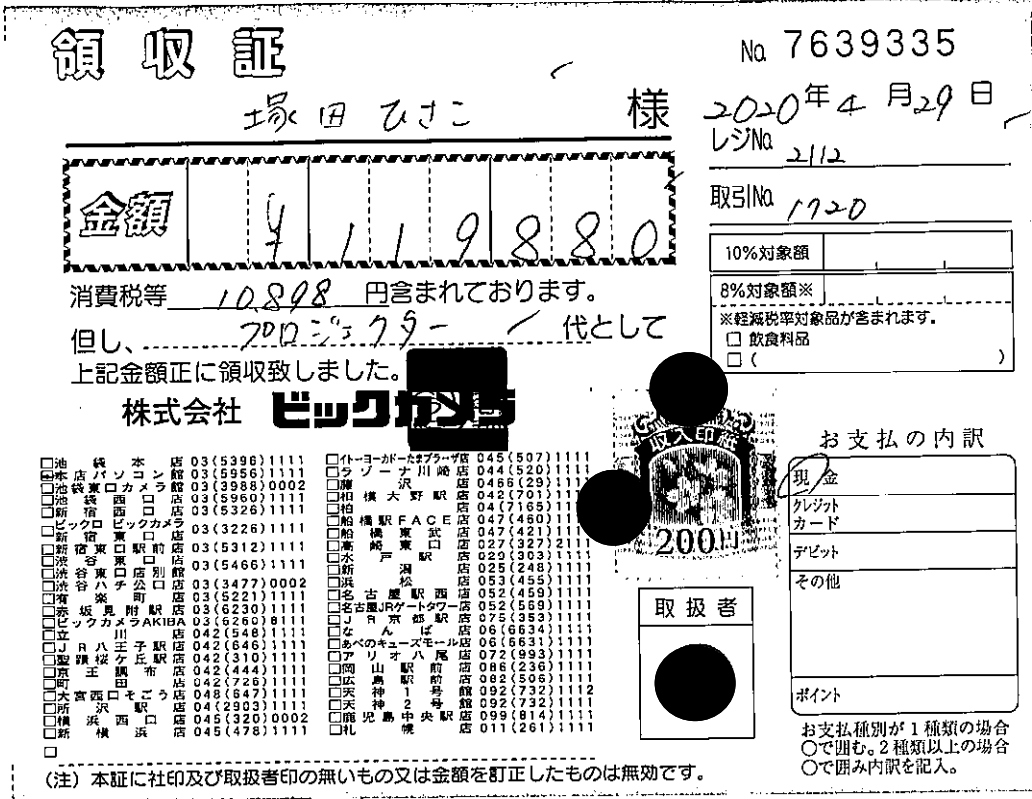 領収証
No. 7639335
塚田 ひさこ 様
2020年4月29日
レジNo. 2112
取引No. 1720
金額 ¥119880
10%対象額
8%対象額※
※軽減税率対象品が含まれます。
□ 飲食料品
□ ( )
消費税等 10,898 円含まれております。
但し、プロジェクター 代として
上記金額正に領収致しました。
株式会社 ビックカメラ
収入印紙
200円
□池袋本店 03(5396)1111
□本店パソコン館 03(5956)1111
□池袋東口カメラ館 03(3988)0002
□池袋西口店 03(5960)1111
□新宿西口店 03(5326)1111
□ビックロ ビックカメラ新宿東口店 03(3226)1111
□新宿東口駅前店 03(5312)1111
□渋谷東口店 03(5466)1111
□渋谷東口店別館
□渋谷ハチ公口店 03(3477)0002
□有楽町店 03(5221)1111
□赤坂見附駅店 03(6230)1111
□ビックカメラAKIBA 03(6260)8111
□立川店 042(548)1111
□JR八王子駅店 042(646)1111
□聖蹟桜ケ丘駅店 042(310)1111
□京王調布店 042(444)1111
□町田店 042(726)1111
□大宮西口そごう店 048(647)1111
□所沢駅店 04(2903)1111
□横浜西口店 045(320)0002
□新横浜店 045(478)1111
□
□イトーヨーカドーたまプラーザ店 045(507)1111
□ラゾーナ川崎店 044(520)1111
□藤沢店 0466(29)1111
□相模大野駅店 042(701)1111
□柏店 04(7165)1111
□船橋駅FACE店 047(460)1111
□船橋東武店 047(421)1111
□高崎東口店 027(327)2111
□水戸駅店 029(303)1111
□新潟店 025(248)1111
□浜松店 053(455)1111
□名古屋駅西店 052(459)1111
□名古屋JRゲートタワー店 052(569)1111
□JR京都駅店 075(353)1111
□なんば店 06(6634)1111
□あべのキューズモール店 06(6631)1111
□アリオ八尾店 072(993)1111
□岡山駅前店 086(236)1111
□広島駅前店 082(506)1111
□天神1号館 092(732)1112
□天神2号館 092(732)1111
□鹿児島中央駅店 099(814)1111
□札幌店 011(261)1111
取扱者
お支払の内訳
現金
クレジットカード
デビット
その他
ポイント
お支払種別が1種類の場合
○で囲む。2種類以上の場合
○で囲み内訳を記入。
(注)本証に社印及び取扱者印の無いもの又は金額を訂正したものは無効です。